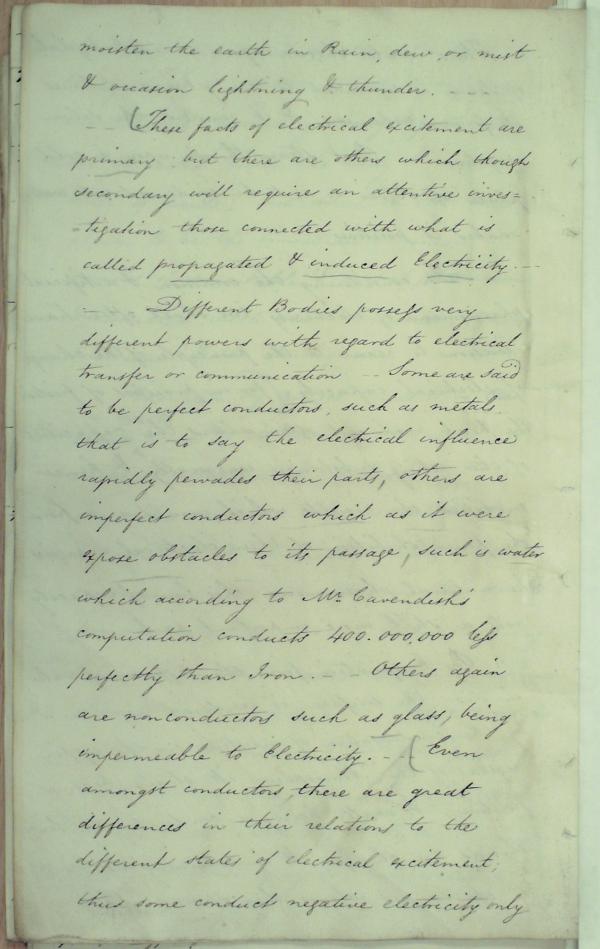 moisten the earth in Rain, dew, or mist
& occasion lightning & thunder. - - -
- - (These facts of electrical excitement are
primary but there are others which though
secondary will require an attentive inves=
-tigation those connected with what is
called propagated & induced Electricity. -
- Different Bodies possess very
different powers with regard to electrical
transfer or communication - Some are said
to be perfect conductors, such as metals.
that is to say the electrical influence
rapidly pervades their parts, others are
imperfect conductors which as it were
expose obstacles to its passage, such is water
which according to Mr. Cavendish's
computation conducts 400.000,000 less
perfectly than Iron. - - Others again
are nonconductors such as glass, being
impermeable to Electricity. - - (Even
amongst conductors there are great
differences in their relations to the
different states of electrical excitement;
thus some conduct negative electricity only